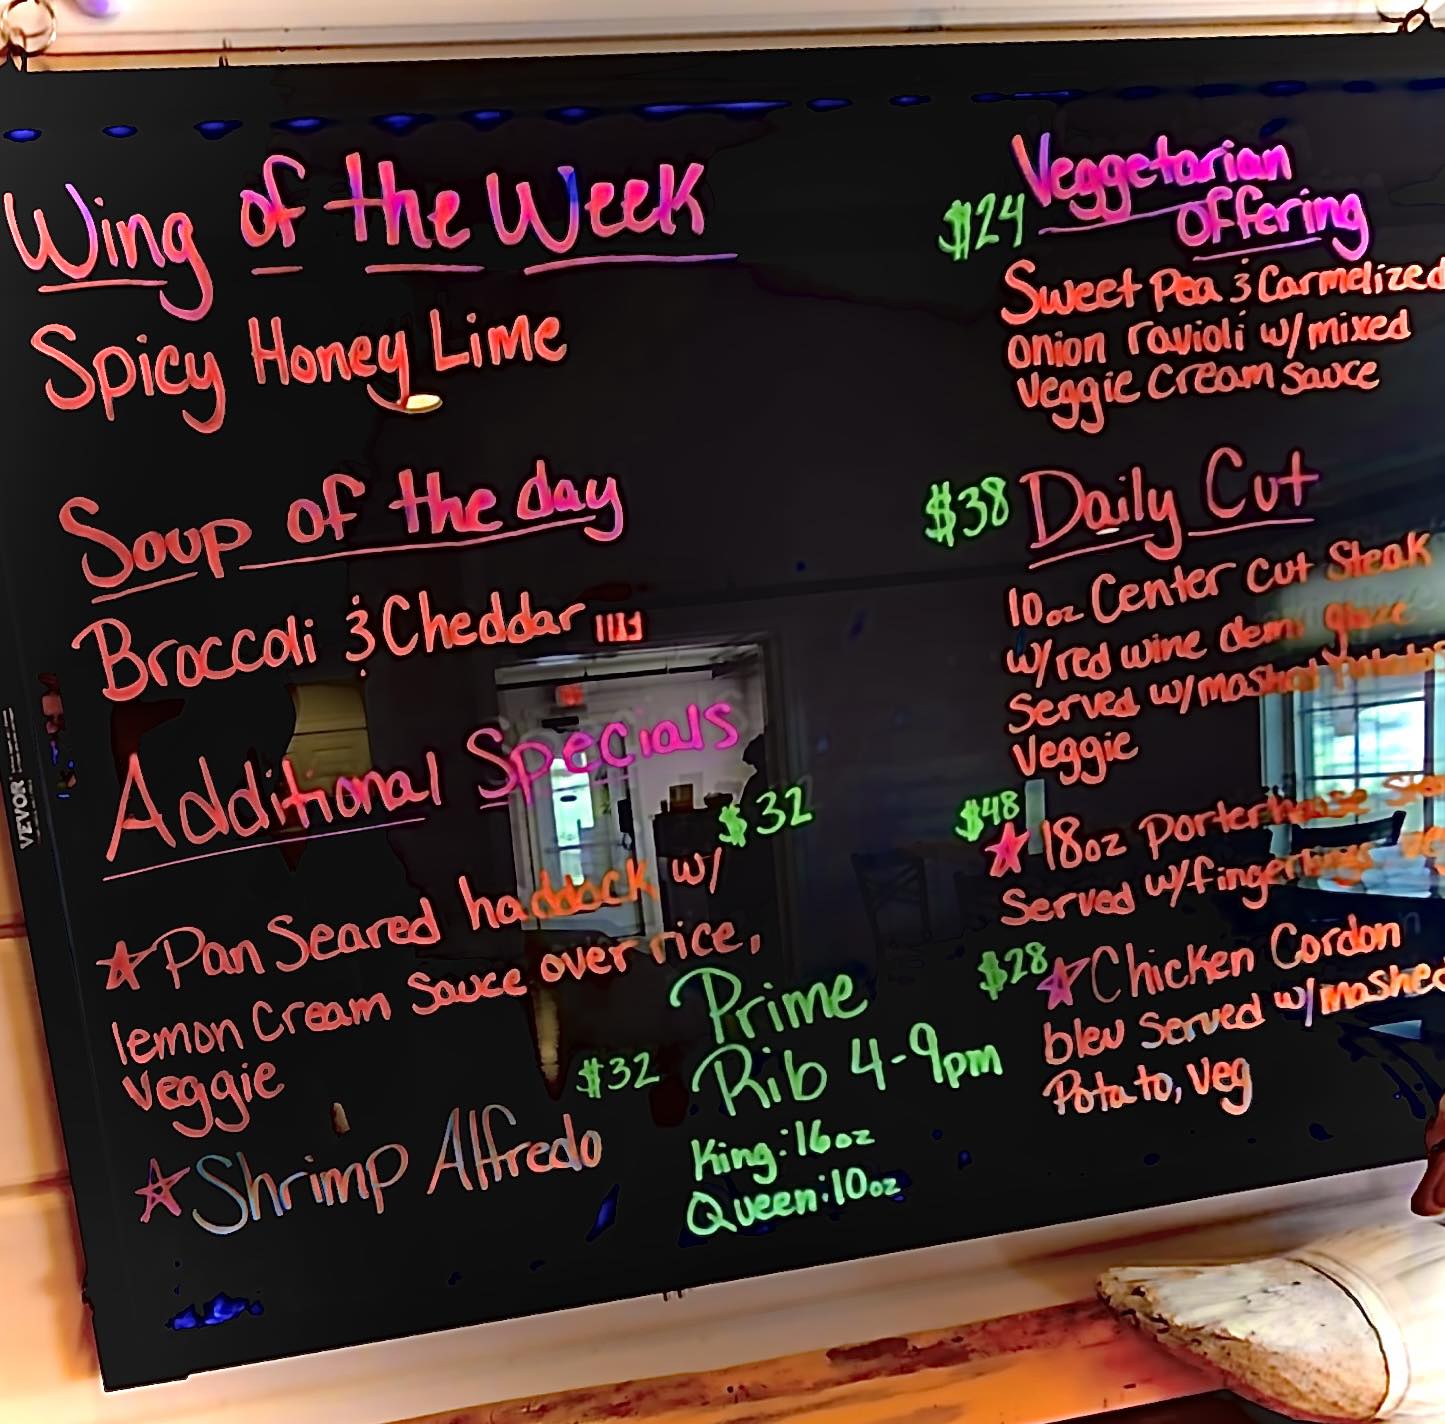 Wing of the Week
Spicy Honey Lime
Soup of the day
Broccoli & Cheddar
Additional Specials
$32
☆Pan Seared haddock w/
lemon Cream Sauce over rice,
Veggie
$32
☆Shrimp Alfredo
Prime
Rib 4-9pm
King: 16oz
Queen: 10oz
$24
Veggetarian
offering
Sweet Pea & Carmelized
Onion ravioli w/ mixed
Veggie Cream Sauce
$38
Daily Cut
10oz Center Cut Steak
w/ red wine demi glaze
Served w/ mashed
Veggie
$48
☆18oz Porterhouse
Served w/ fingerlings
$28
☆Chicken Cordon
bleu Served w/ mashed
Potato, Veg
VEVOR